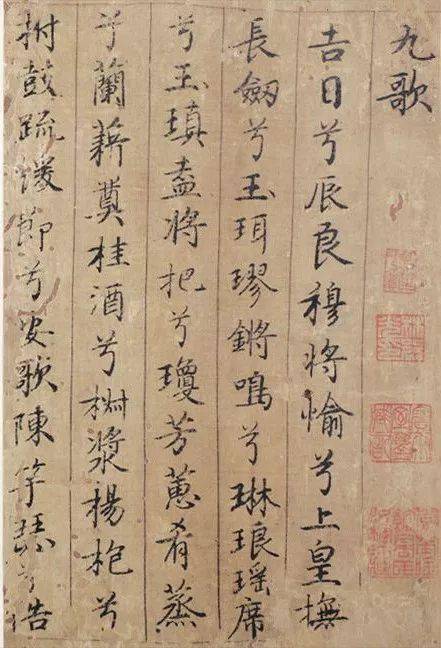 九歌
吉日兮辰良穆將愉兮上皇撫
長劒兮玉珥璆鏘鳴兮琳琅瑶席
兮玉瑱盍將把兮瓊芳蕙肴蒸
兮蘭藉奠桂酒兮椒漿楊枹兮
拊鼓疏緩節兮安歌陳竽瑟兮浩